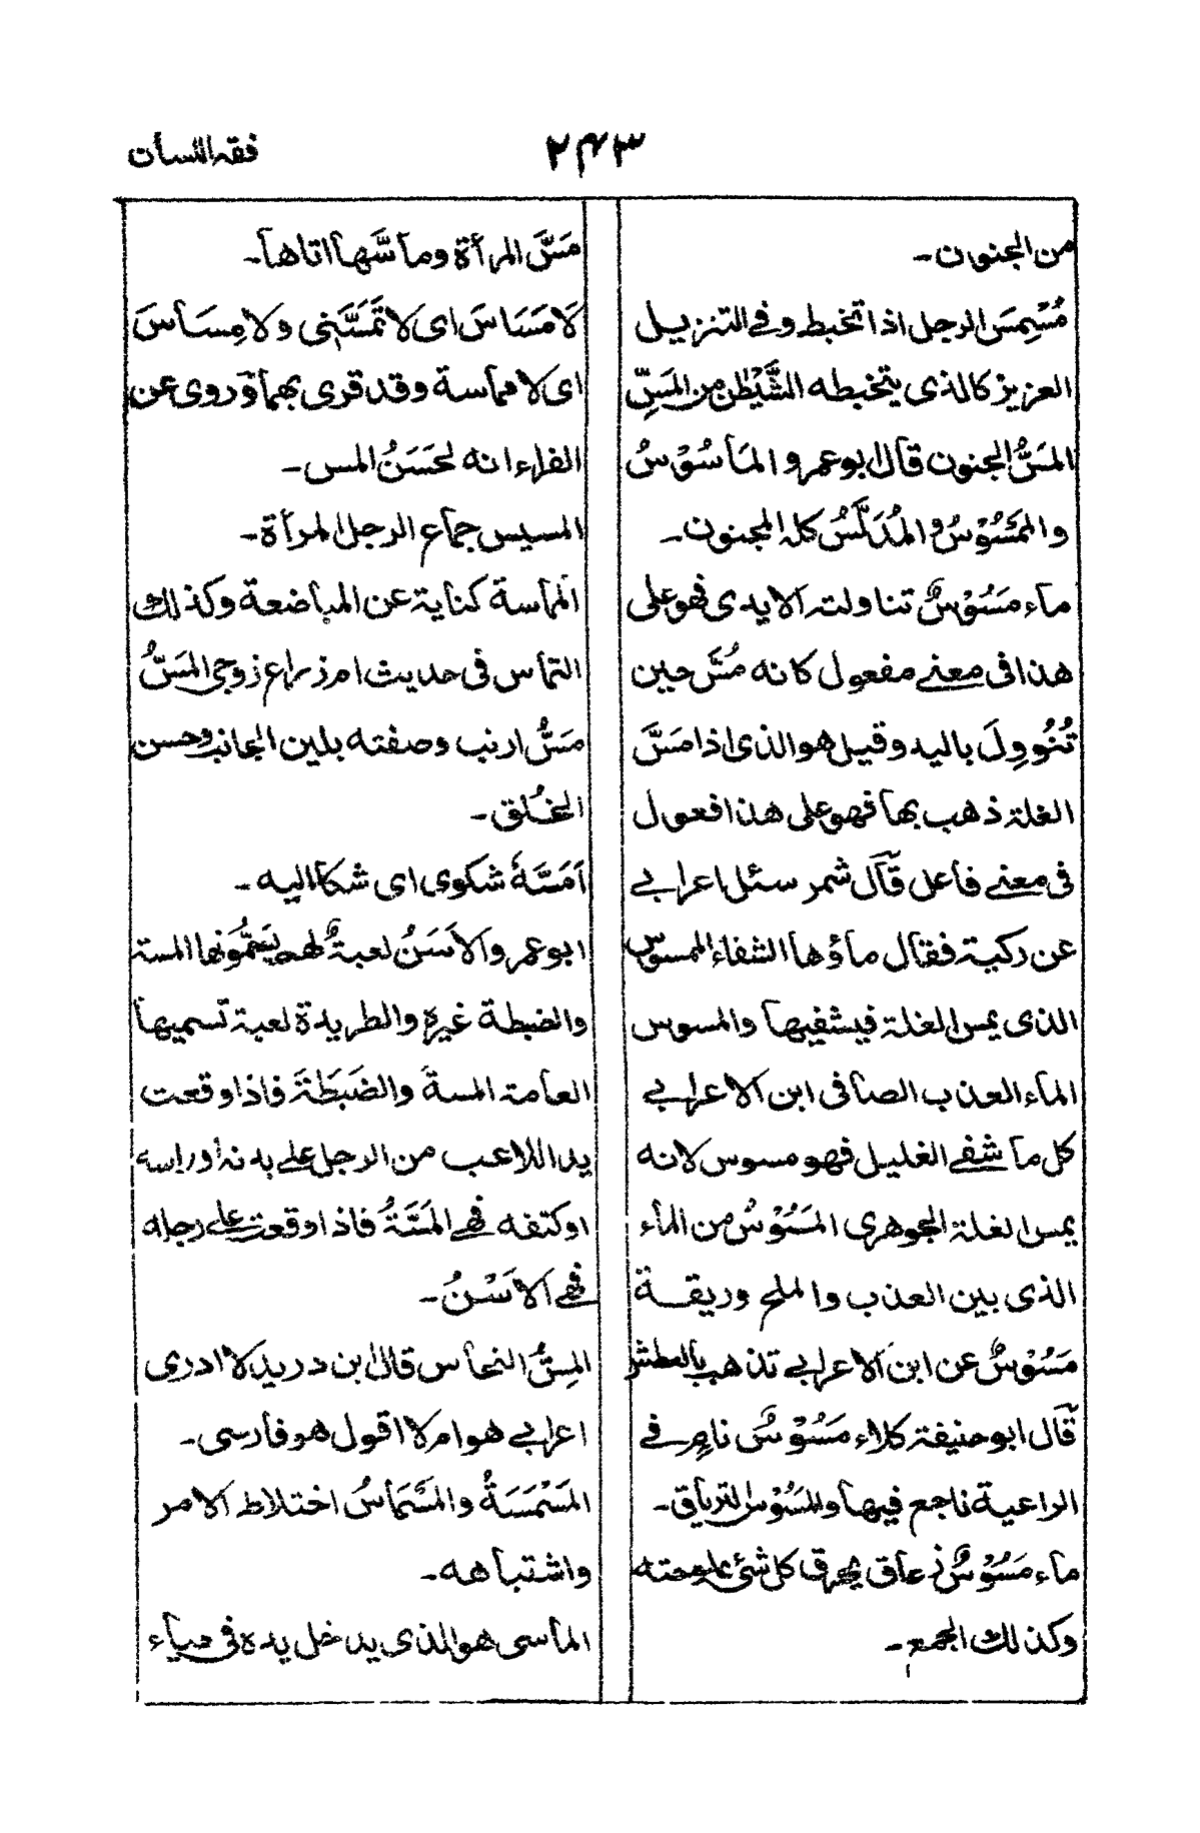 فقه اللسان
۲۴۳
من الجنون۔
مُسْمِسَ الرجل اذا تخبط و فی التنزیل
العزیز کالذی یتخبطه الشَّیْطٰن من المَسِّ
المَسُّ الجنون قال ابو عمرو المأسُوْسُ
والمَمْسُوْسُ والمُدَلَّسُ کله المجنون۔
ماء مَسُوْسٌ تناولته الایدی فهو علی
هذا فی معنے مفعول کانه مُسَّ حین
تُنُووِلَ بالید وقیل هو الذی اذا مَسَّ
الغلة ذهب بها فهو علی هذا فعول
فی معنے فاعل قال شمر سئل اعرابے
عن رکیة فقال ماؤها الشفاء المسوس
الذی یمس الغلة فیشفیها والمسوس
الماء العذب الصافی ابن الاعرابے
کل ما شفے الغلیل فهو مسوس لانه
یمس الغلة الجوهری المَسُوْسُ من الماء
الذی بین العذب والملح وریقــة
مَسُوْسٌ عن ابن الاعرابے تذهب بالعطش
قال ابو حنیفة کلاء مَسُوْسٌ نامٍ فے
الراعیة ناجع فیها والمَسُوْس التریاق۔
ماء مَسُوْسٌ زعاق یحرق کل شئ بملوحته
وکذلك الجمع۔
مَسَّ المرأة وماسَّها اتاها۔
لَا مَسَاسَ ای لا تَمَسَّنی ولا مِسَاسَ
ای لا مماسة وقد قری بهما وروی عن
الفراء انه لحَسَنُ المس۔
المسیس جماع الرجل المرأة۔
المماسة کنایة عن المباضعة وکذلك
التماس فی حدیث ام زراع زوجی المَسُّ
مَسُّ ارنب وصفته بلین الجانب وحسن
الخُلق۔
اَمَسَّهٗ شکوی ای شکا الیه۔
ابو عمرو الاَسَنُ لعبةٌ لهم یسَمُّونها المسة
والضبطة غیره والطریدة لعبة تسمیها
العامة المسةَ والضَبَطَةَ فاذا وقعت
ید اللاعب من الرجل علے بدنه اوراسه
اوکتفه فهے المَسَّةُ فاذا وقعت علے رجله
فهے الاَسْنُ۔
المِسُّ النحاس قال ابن درید لا ادری
اعرابے هو ام لا اقول هو فارسی۔
المَسْمَسَةُ والمَسْمَاسُ اختلاط الامر
واشتباهه۔
الماسی هو الذی یدخل یده فی حیاء